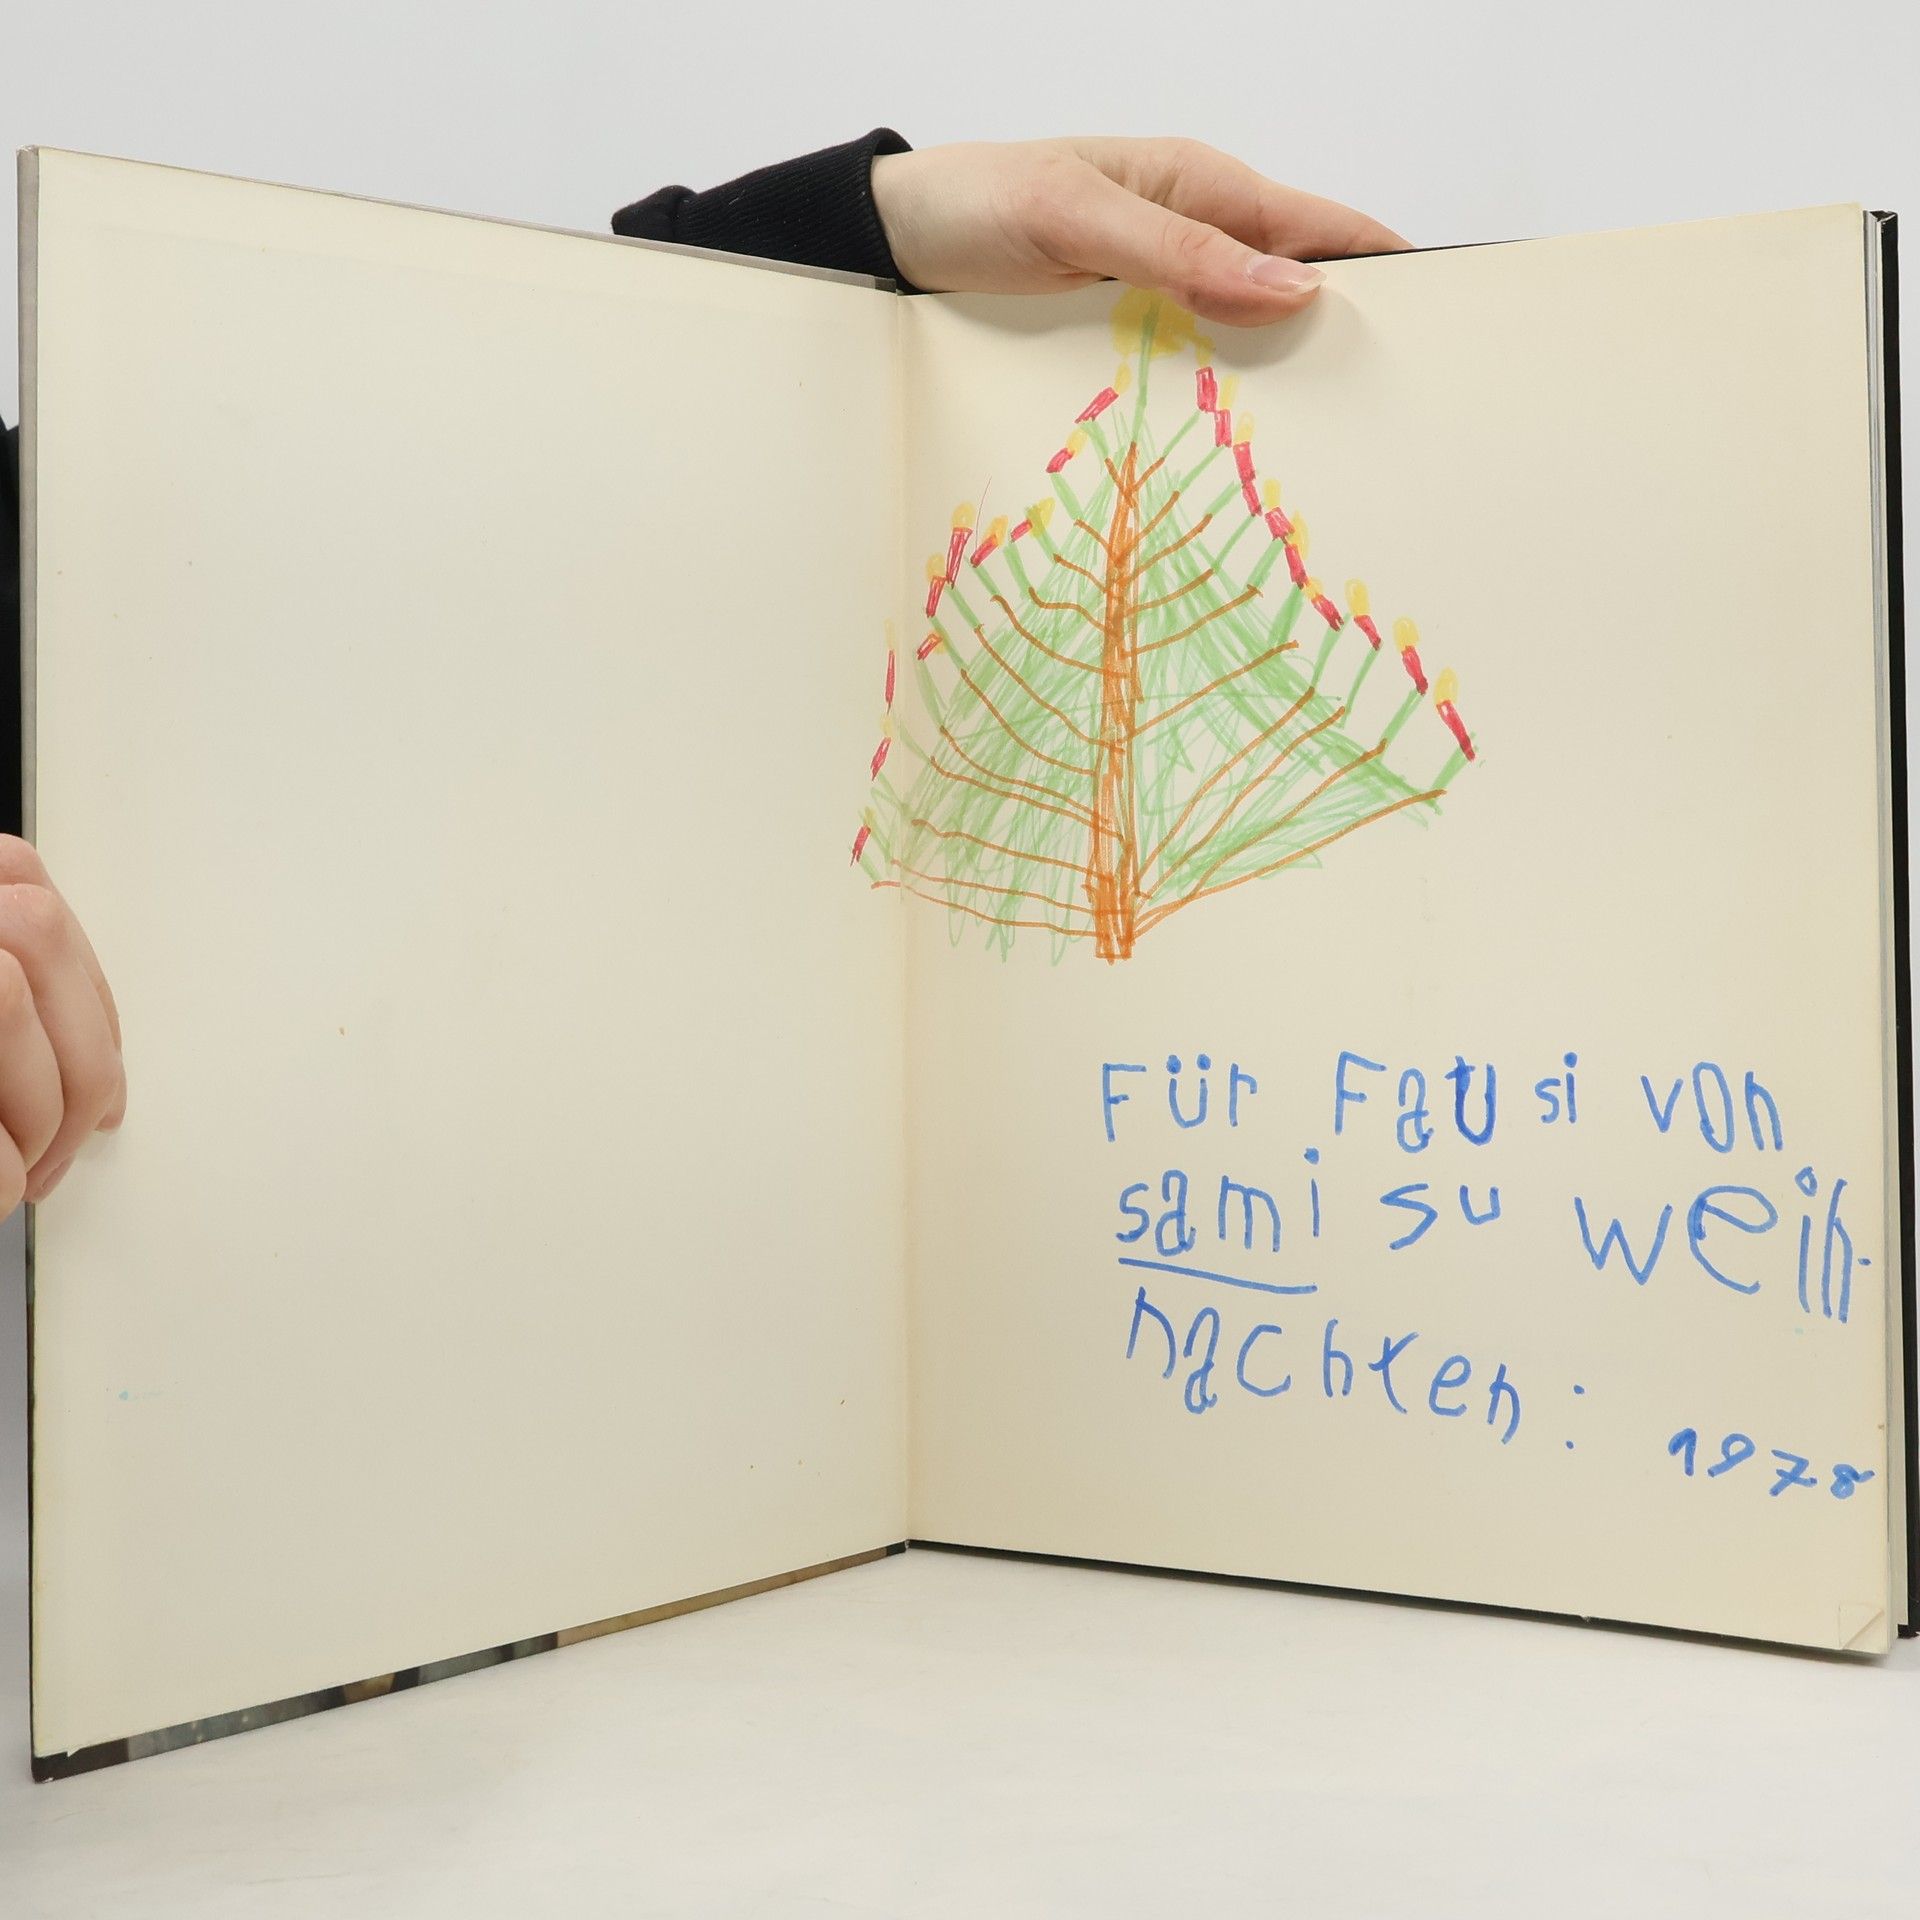 Für Fausi von
sami su weih-
nachten:
1978